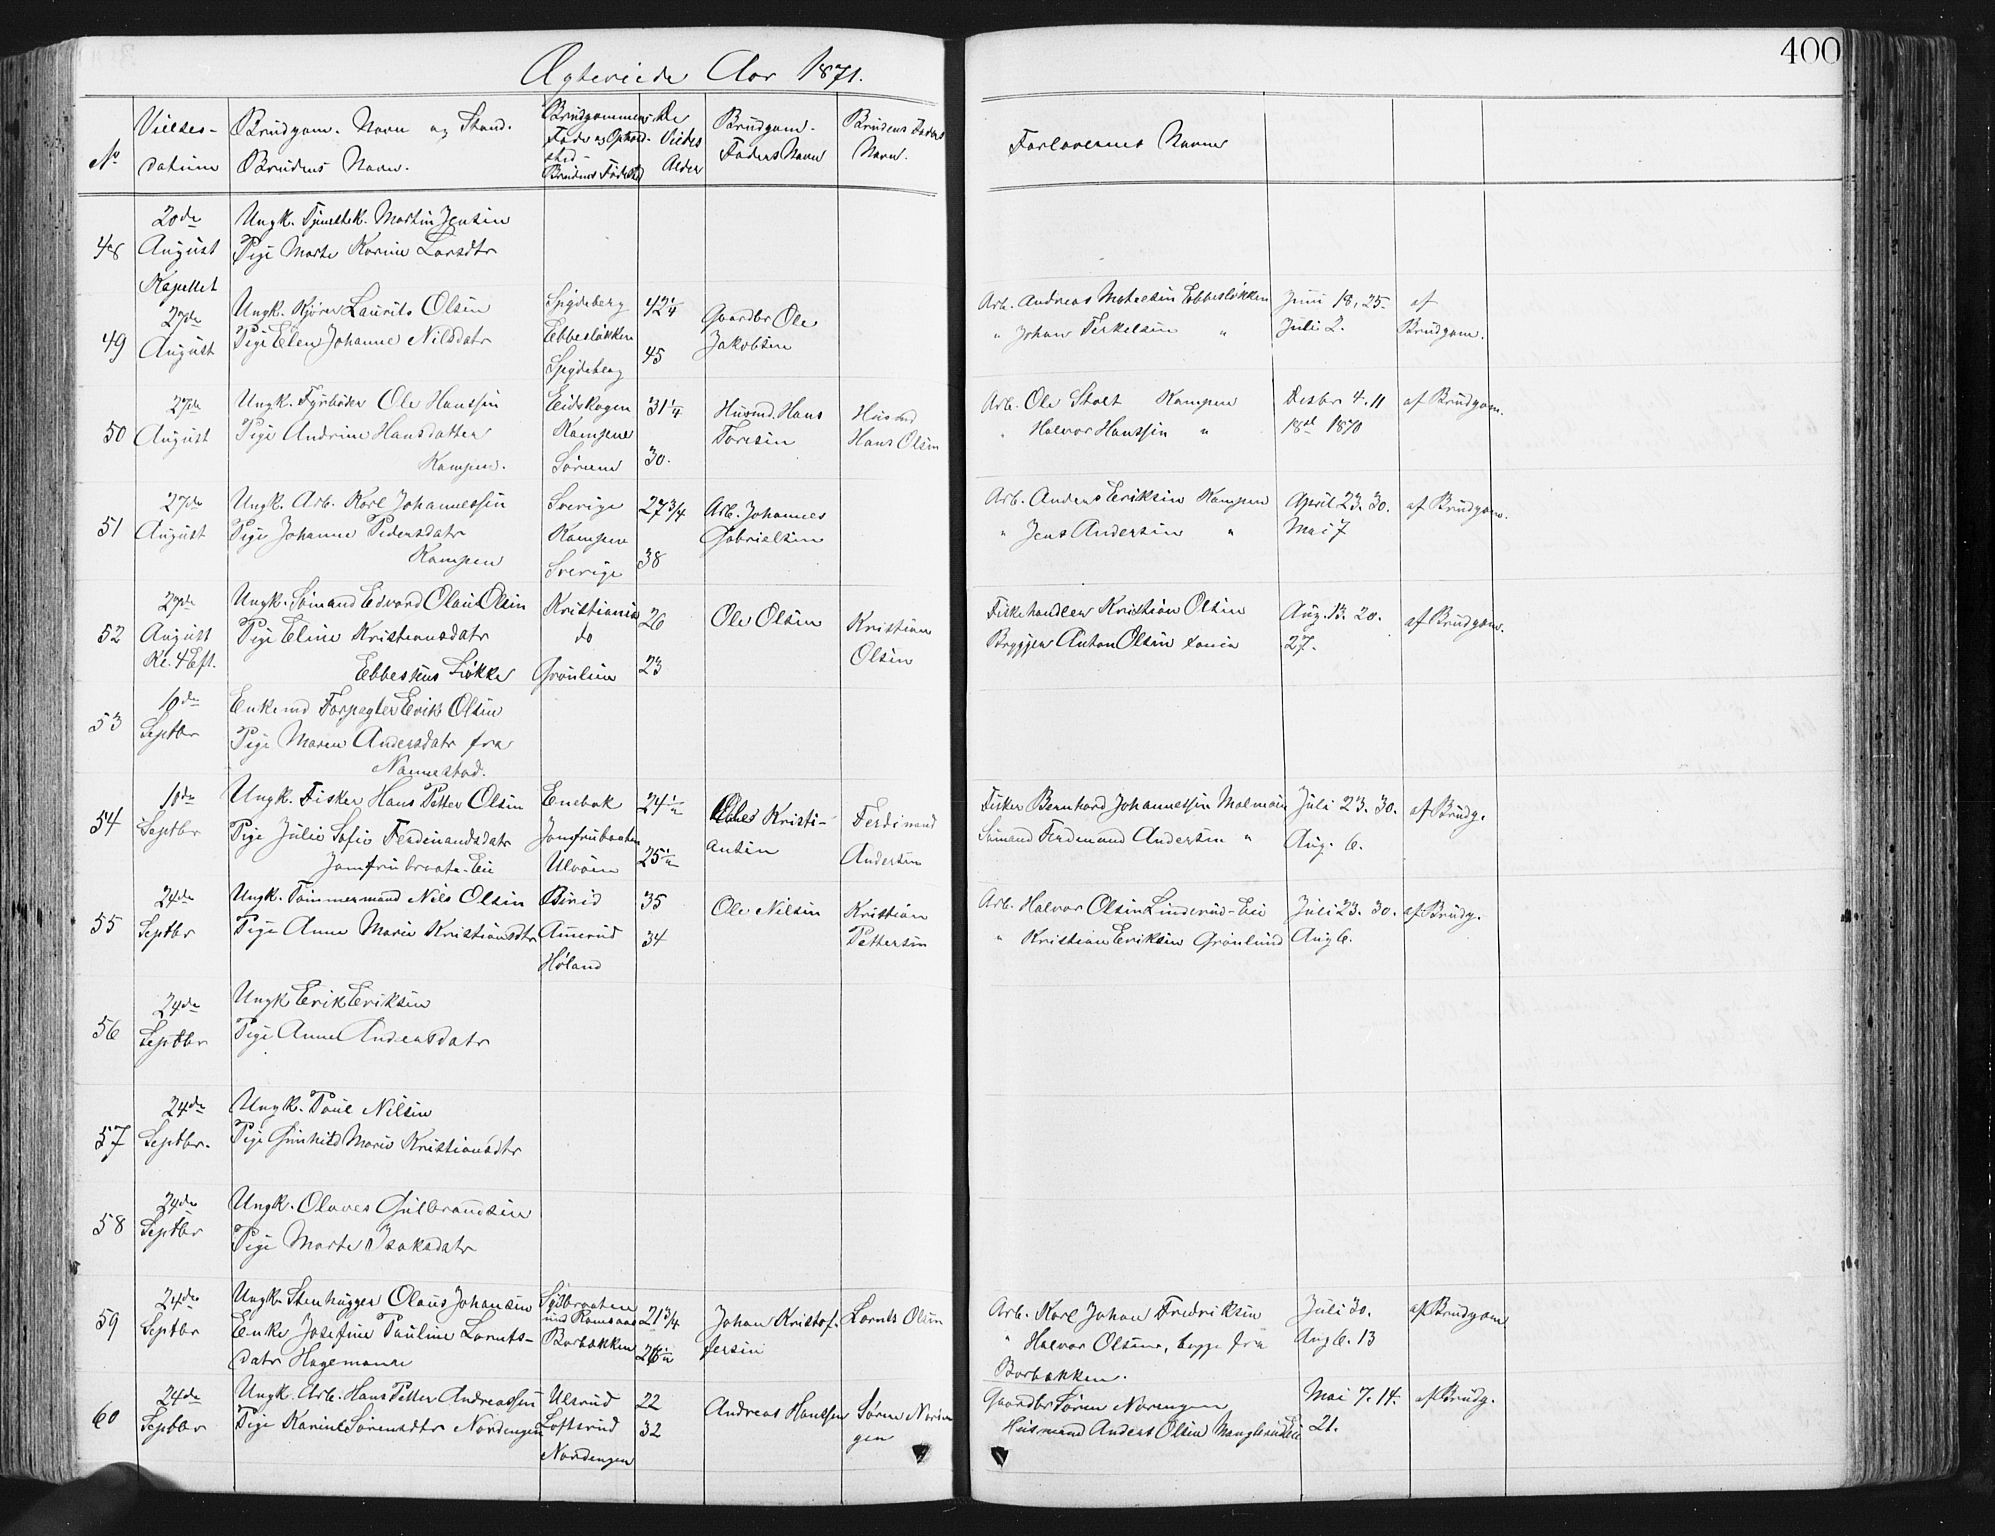 Ægteviede Aar 1871.
400
No
Vielses-
datum
Brudgom. Navn og Stand.
Brudens Navn.
Brudgommens
Føde og Ophold-
sted -
Brudens Fødested
De
Viedes
Alder
Brudgom.
Faders Navn
Brudens Faders
Navn.
Forlovernes Navne
48
20de
August
Kapellet
Ungk. Tjenestek. Martin Jensen
Pige Marte Karine Larsdtr
49
27de
August
Ungk. Kjører Laurits Olsen
Pige Elen Johanne Nilsdatr
Spydeberg
Ebbesløkken
Spydeberg
42 1/4
45
Gaardbr Ole
Jakobsen
Arb. Andreas Ebbesløkken
" Johan Terkelsen "
Juni 18, 25.
Juli 2.
af
Brudgom.
50
27de
August
Ungk. Fyrbøder Ole Hanssen
Pige Andrine Hansdatter
Kampen.
Eidskogen
Kampen
Sørum
31 1/4
30.
Husmd. Hans
Toresen
Husmd
Hans Olsen
Arb. Ole Stolt Kampen
" Halvor Hanssen "
Desbr 4. 11
18de 1870
af Brudgom.
51
27de
August
Ungk. Arb. Karl Johannessen
Pige Johanne Pedersdatr
Kampen
Sverige
Kampen
Sverige
27 3/4
38
Arb. Johannes
Gabrielsen
Arb. Anders Eriksen Kampen
" Jens Andersen "
April 23. 30.
Mai 7
af Brudgom.
52
27de
August
Kl. 4 Eft.
Ungk. Sømand Edvard Olaus Olsen
Pige Eline Kristiansdatr
Ebbeshus Løkke
Kristiania
do
Grønlien
26
23
Ole Olsen
Kristian
Olsen
Fiskehandler Kristian Olsen
Anton Olsen
Aug. 13. 20.
27.
af Brudgom.
53
10de
Septbr
Enkemd Forpagter Erik Olsen
Pige Maren Andersdatr fra
Nannestad.
54
10de
Septbr
Ungk. Fisker Hans Petter Olsen
Pige Julie Sofie Ferdinandsdatr
Jomfrubraaten-Eie
Enebak
Jomfrubraaten
Ulvøen
24 1/2
25 1/2
Kristi-
ansen
Ferdinand
Andersen
Fisker Bernhard Johannessen Malmøen
Sømand Ferdinand Andersen "
Juli 23. 30.
Aug. 6.
af Brudg.
55
24de
Septbr
Ungk. Tømmermand Nils Olsen
Pige Anne Marie Kristiansdtr
Birid
Ammerud
Høland
35
34
Ole Nilsen
Kristian
Pettersen
Arb. Halvor Olsen Linderud-Eie
" Kristian Eriksen Grønlund
Juli 23. 30.
Aug 6.
af Brudg.
56
24de
Septbr
Ungk Erik Eriksen
Pige Anne Andreasdatr
57
24de
Septbr.
Ungk. Paul Nilsen
Pige Gunhild Marie Kristiansdtr
58
24de
Septbr
Ungk. Olaves Gulbrandsen
Pige Marte Isaksdatr
59
24de
Septbr
Ungk. Stenhugger Olaus Johansen
Enke Josefine Pauline Lornts-
datr Hagemann
Sølbraaten
und Romsaas
Borbakken
21 3/4
26 1/2
Johan Kristof-
fersen
Lornts Olsen
Arb. Karl Johan Fredriksen
" Halvor Olsen, begge fra
Borbakken.
Juli 30.
Aug 6. 13
af Brudgom
60
24de
Septbr
Ungk. Arb. Hans Petter Andreassen
Pige Karine Sørensdtr Nordengen
Ulsrud
Loftsrud
Nordengen
22
32
Andreas Hanssen
Søren Norden-
gen
Gaardbr Søren Norengen
Husmand Anders Olsen Manglerud Eie
Mai 7. 14.
21.
af Brudg.